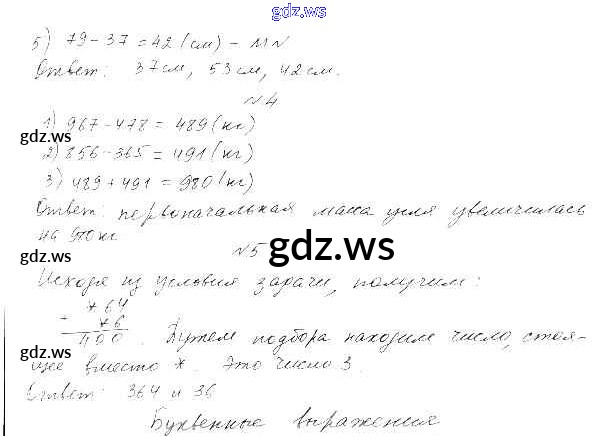 gdz.ws
5) 79-37=42 (см) - MN
Ответ: 37см, 53см, 42см.
№4
gdz.ws
1) 967-478=489(кг)
gdz.ws
2) 856-365=491(кг)
3) 489+491=980(кг)
Ответ: первоначальная маса угля увеличилась
gdz.ws
на 980кг
№5
gdz.ws
Исходя из условия задачи, получим:
*64
+ *6
400 . Путем подбора находим число, стоя-
gdz.ws
щее вместо *. Это число 3.
Ответ: 364 и 36
gdz.ws
Буквенные выражения